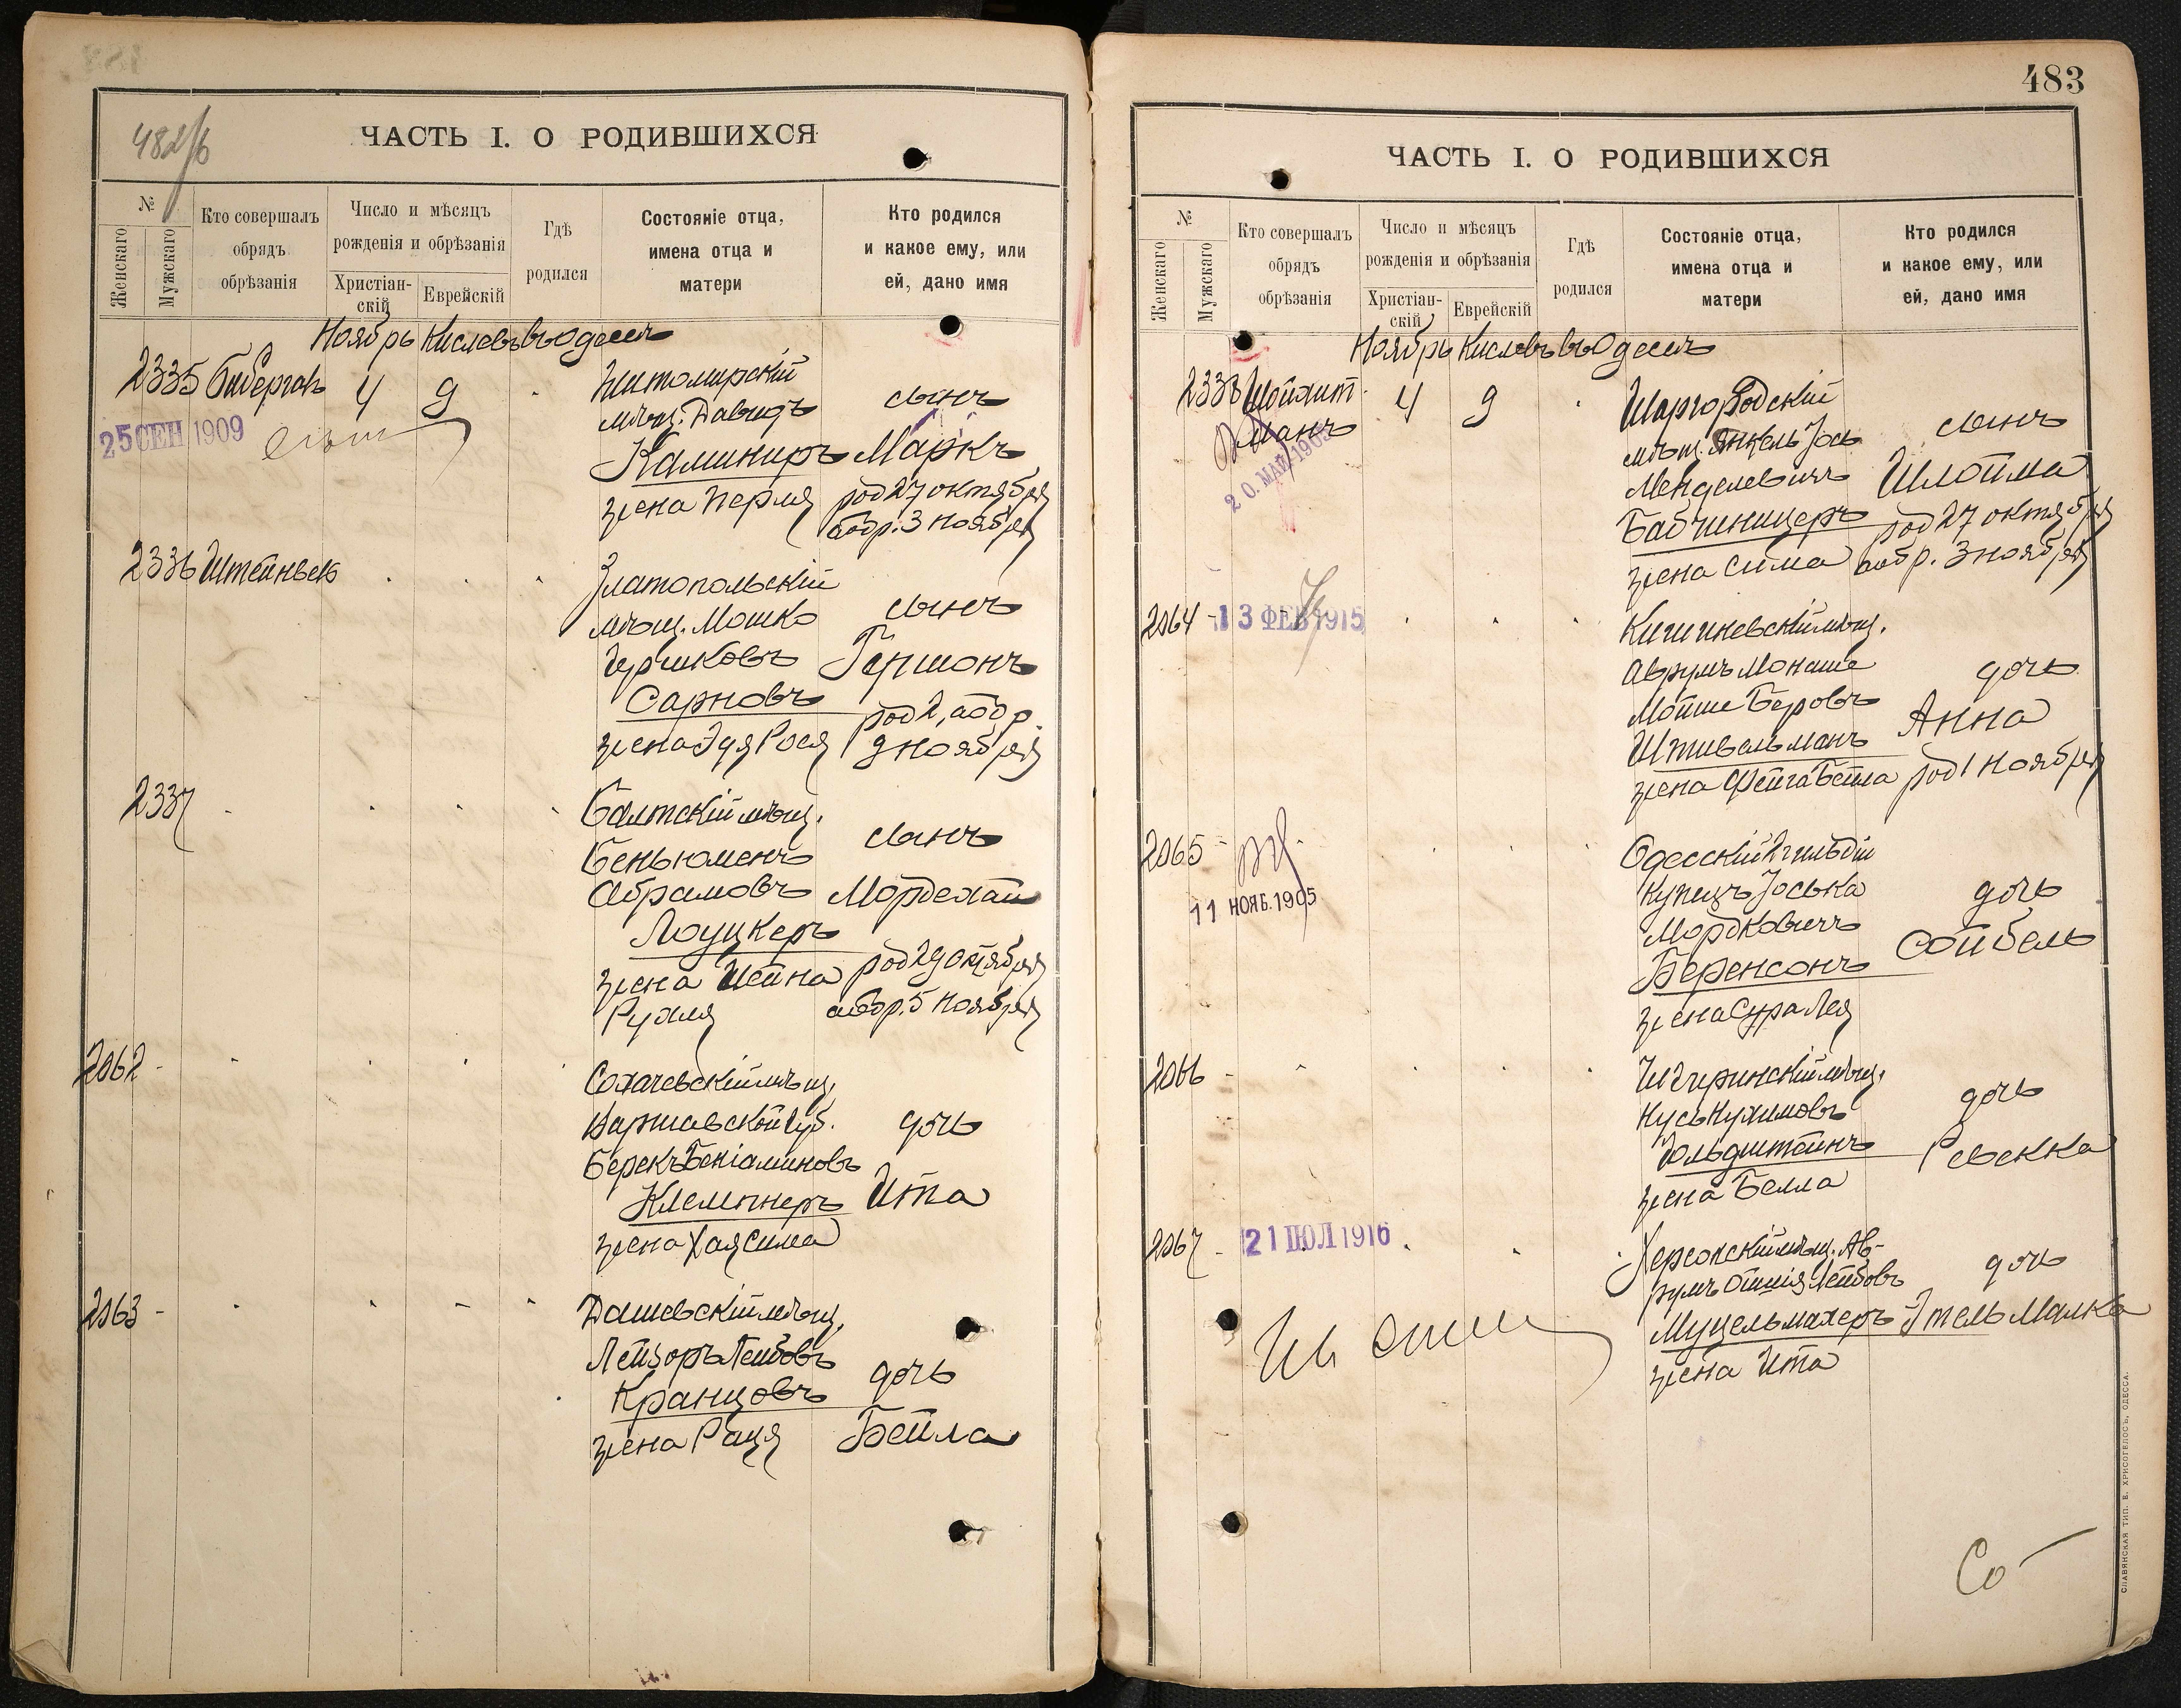 482/б
ЧАСТЬ I. О РОДИВШИХСЯ
№
Женскаго
Мужскаго
Кто совершалъ
обрядъ
обрѣзанія
Число и мѣсяцъ
рожденія и обрѣзанія
Христіан-
скій
Еврейскій
Гдѣ
родился
Состояніе отца,
имена отца и
матери
Кто родился
и какое ему, или
ей, дано имя
Ноябрь Кислевъ въ Одессѣ
2335 4 9
25 СЕН 1909
Житомирскій
мѣщ. Давидъ
Каминиръ
жена Перля
сынъ
Маркъ
род 27 октября
обр. 3 ноября
2336
Златопольскій
мѣщ. Мошко
Гершковъ
Сарновъ
жена Эдя Рося
сынъ
Гершонъ
род 2, обр
9 ноября
2337
Балтскій мѣщ.
Беньюменъ
Абрамовъ
Лоуцкеръ
жена Шейна
Рухля
сынъ
Мордехай
род 29 октября
обр. 5 ноября
2062
Сохачевскій мѣщ.
Варшавской губ.
Берекъ Беніаминовъ
Клемпнеръ
жена Хая Сима
дочь
Ита
2063
Дашевскій мѣщ.
Лейзоръ Лейбовъ
Кранцовъ
жена Рася
дочь
Бейла
483
ЧАСТЬ I. О РОДИВШИХСЯ
№
Женскаго
Мужскаго
Кто совершалъ
обрядъ
обрѣзанія
Число и мѣсяцъ
рожденія и обрѣзанія
Христіан-
скій
Еврейскій
Гдѣ
родился
Состояніе отца,
имена отца и
матери
Кто родился
и какое ему, или
ей, дано имя
Ноябрь Кислевъ въ Одессѣ
2338 Шойхит 4 9
манъ
20. МАЙ 1905
Шаргородскій
мѣщ. Янкель Іось
Менделевичъ
Бабчиницеръ
жена Сима
сынъ
Шлойма
род 27 октября
обр. 3 ноября
2064
13 ФЕВ 1915
Кишиневскій мѣщ.
Аврумъ Монаше
Мойше Беровъ
Штивельманъ
жена Фейга Бейла
дочь
Анна
род 1 ноября
2065
11 НОЯБ. 1905
Одесскій 2 гильдіи
купецъ Іоська
Мордковичъ
Беренсонъ
жена Сура Лея
дочь
Сойбель
2066
Чигиринскій мѣщ.
Нусь Нухимовъ
Гольдштейнъ
жена Белла
дочь
Ревекка
2067
21 ІЮЛ 1916
Херсонскій мѣщ. Ав-
румъ Ошія Лейбовъ
Муцельмахеръ
жена Ита
дочь
Этель Малка
СЛАВЯНСКАЯ ТИП. Е. ХРИСОГЕЛОСЪ, ОДЕССА.